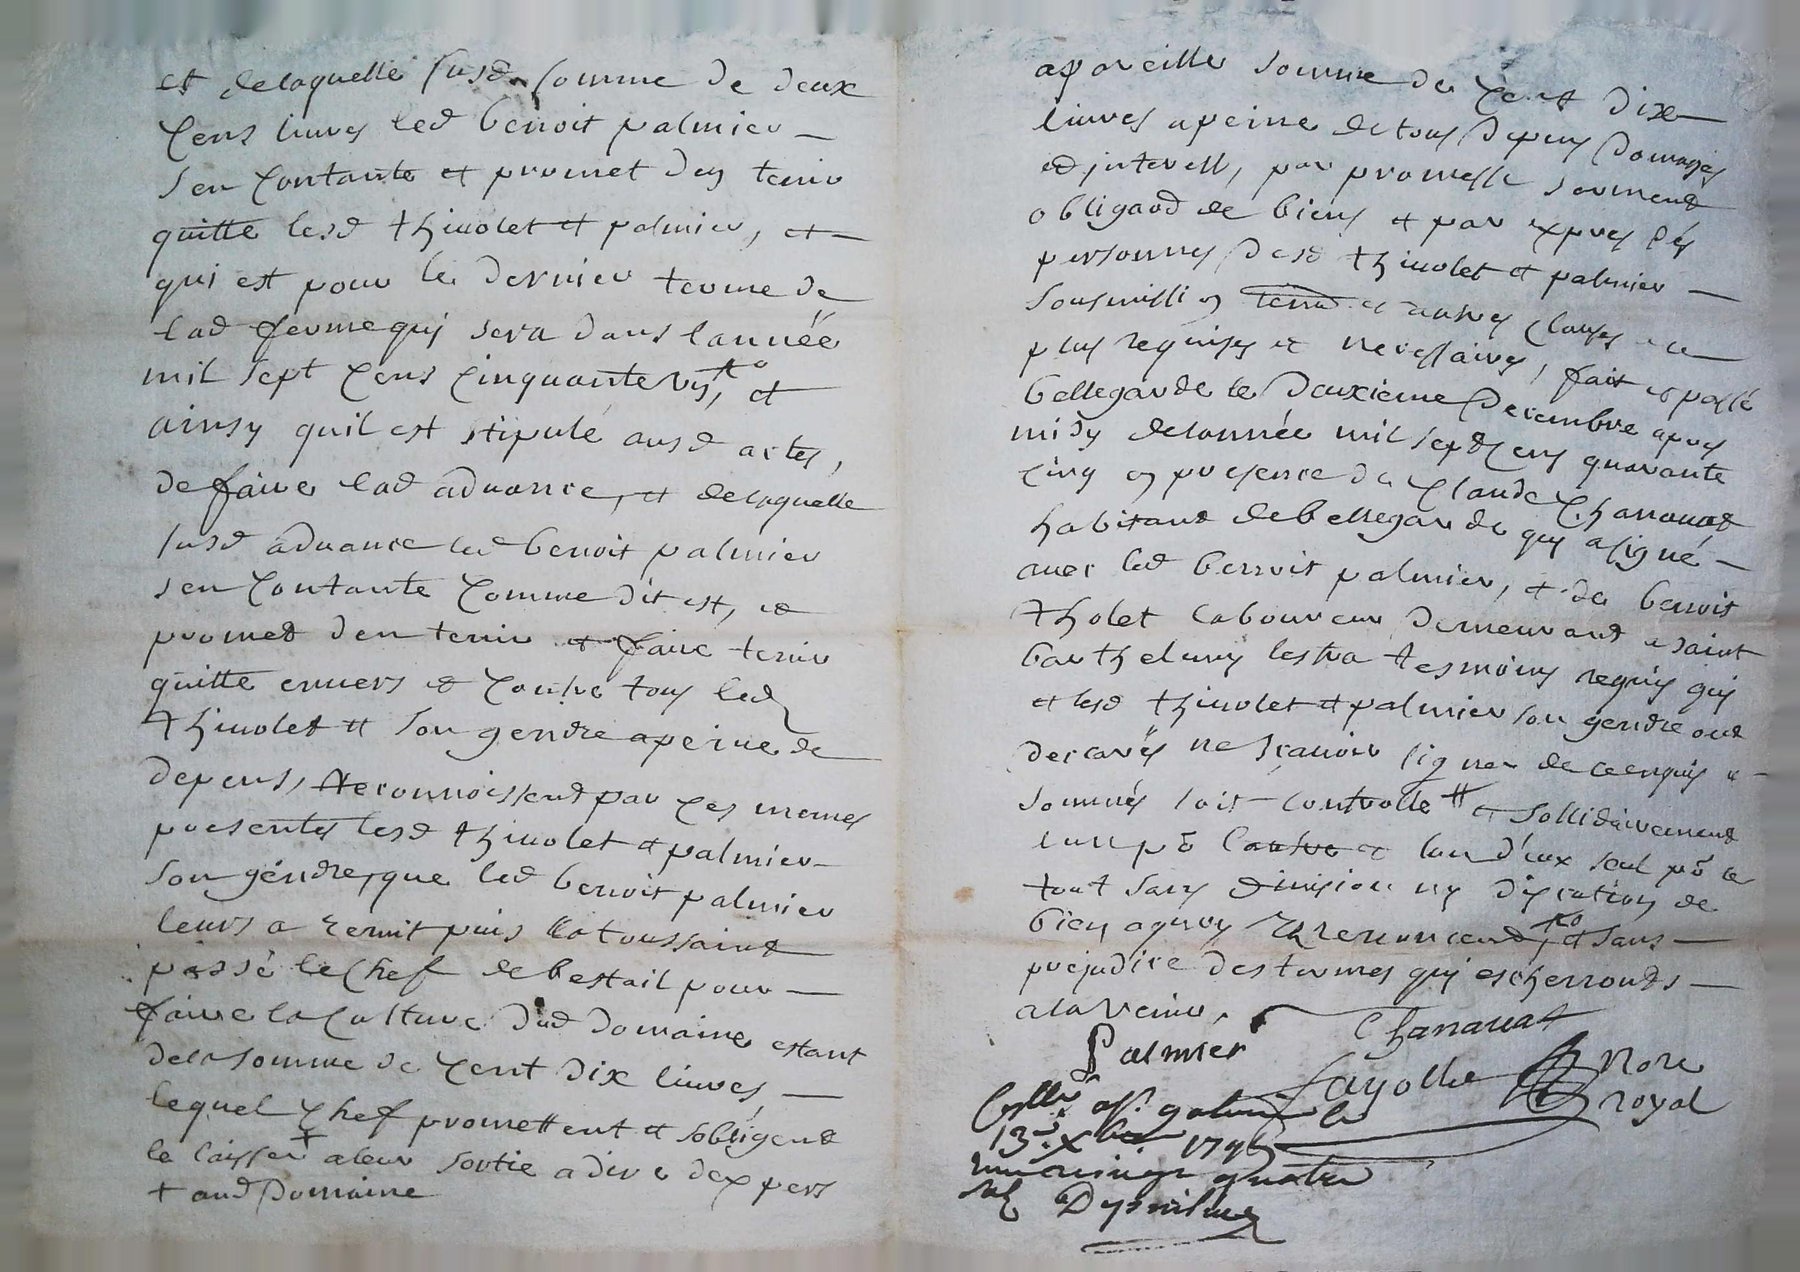 et delaquelle susd somme de deux
cens livres led benoit palmier
sen contante et promet den tenir
quitte lesd thivolet et palmier, et
qui est pour le dernier terme de
lad ferme quy sera dans lannéé
mil sept cens cinquante
ainsy quil est stipulé ausd actes,
de faire lad advance, et delaquelle
susd advance led benoit palmier
sen contante comme dit est, et
promet den tenir et faire tenir
quitte envers et contre tous led
thivolet et son gendre apeine de
depens, Reconnoissent par ces memes
presentes lesd thivolet et palmier
son géndre, que led benoit palmier
leurs a remit puis la toussaint
passé le chef de bestail pour
faire la culture dud domaine estant
dela somme de cent dix livres,
lequel chef promettent et sobligent
le laisser + aleur sortie a dire dexpers
+ aud Domaine
apareille somme de cent dix
livres apeine de tous depens domages
et interest, par promesse serment
obligaod de biens et par expres lés
personnes desd thivolet et palmier
sousmission et autres clauses
plus requises et necessaires, fait et passé
bellegarde le deuxieme Decembre apres
midy delannée mil sept cens quarante
cinq en presence de claude Chanavat
habitant debellegarde quy asigné
avec led benoit palmier, et de benoit
tholet laboureur demeurant a saint
barthelemy lestra tesmoins requis quy
et lesd thivolet et palmier son gendre ont
declarés ne scavoir signer de ce enquis et
sommés soit controllé # et sollidairement
lun po lautre et lun deux seul po le
tout sans division ny discution de
bien aquoy Ils renoncent, et sans
prejudice des termes quy escherronds
alavenir,
Chanavat
Palmier
Fayolle Nore
royal
le
13e Xbre 1745
quatre